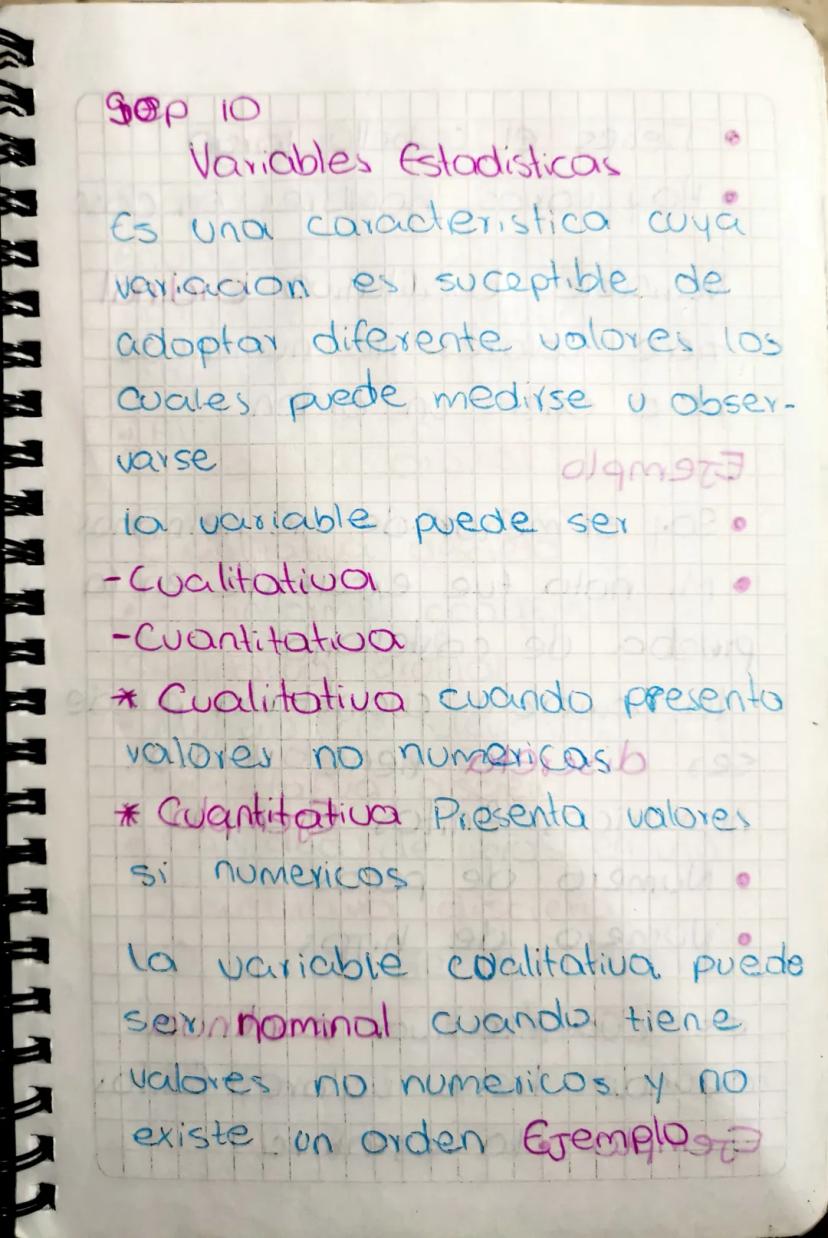 Sep 10
Variables Estadisticas
Es una caracteristica cuya
variacion es suceptible de
adoptar diferente valores los
cuales puede medirse u obser-
varse
la variable puede ser
- Cualitativa
- Cuantitativa
* Cualitativa cuando presenta
valores no numericas
* Cuantitativa Presenta valores
si numericos
la variable coalitativa puede
ser nominal cuando tiene
valores no numericos y no
existe un orden Ejemplo